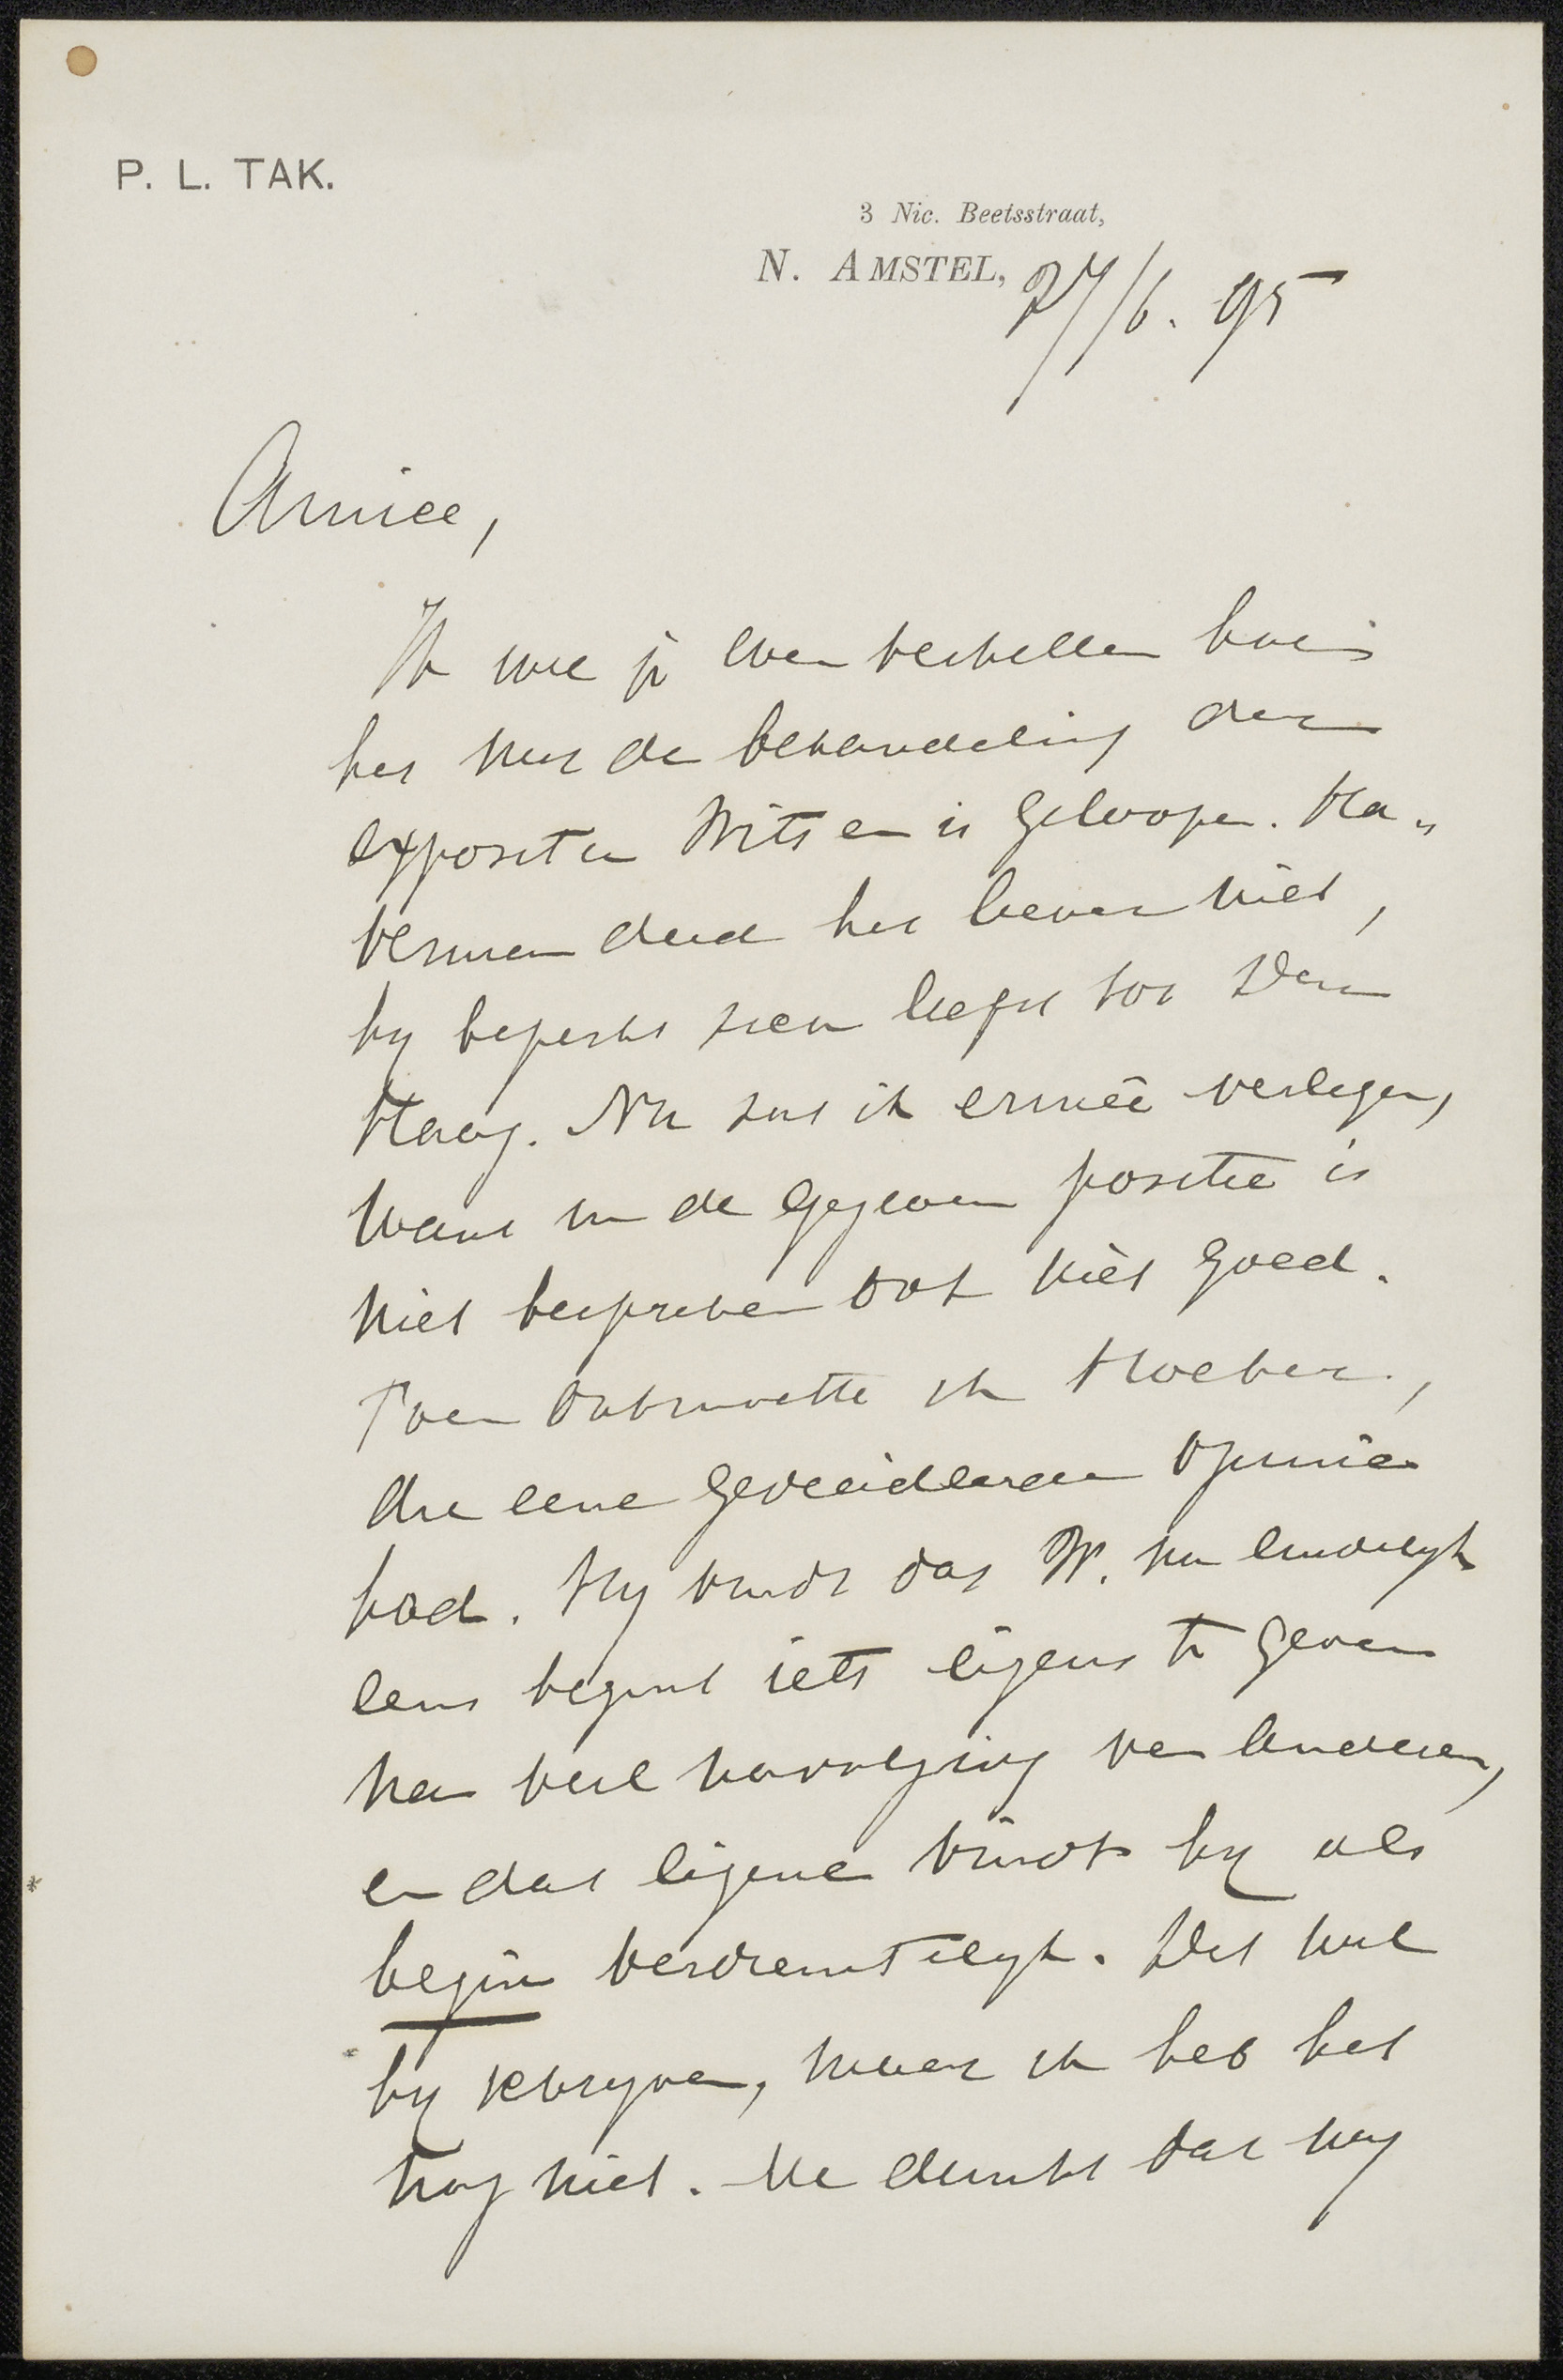 P. L. TAK.
3 Nic. Beetsstraat,
N. AMSTEL, 27/6. 95
Amice,
Ik wil je even vertellen hoe
het met de behandeling der
expositie Witsen is geloopen. Ha„
verman deed het liever niet,
hy beperkt zich liefst tot Den
Haag. Nu zat ik ermeê verlegen,
want in de gegeven positie is
niet bespreken ook niet goed.
Toen ontmoette ik Moeker,
die eene gedecideerde opinie
had. Hy vindt dat W. nu eindelyk
eens begint iets eigens te geven
na veel navolging van anderen,
en dat eigene vindt hy als
begin verdienstelyk. Dit wil
hy schryven, maar ik heb het
nog niet. Me dunkt dat wy